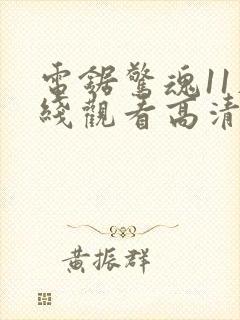 電鋸驚魂11
綫觀看高清
黃振群